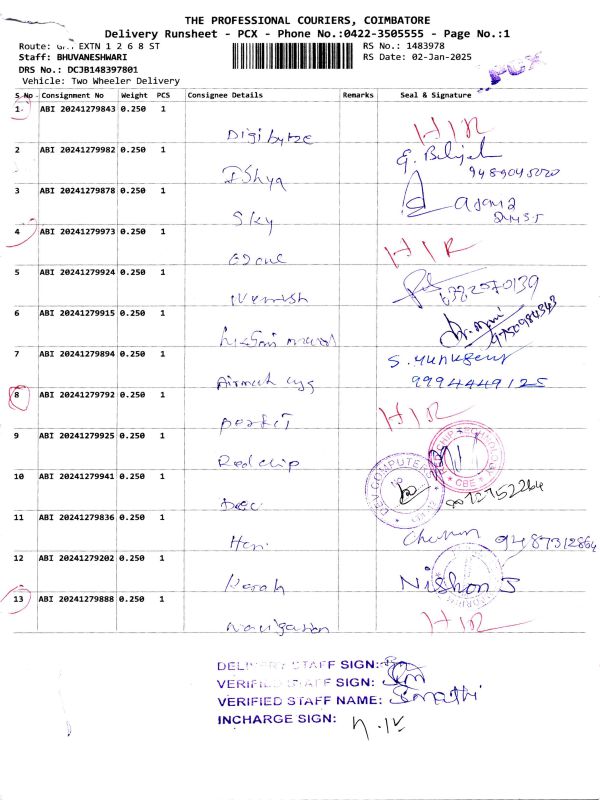 THE PROFESSIONAL COURIERS, COIMBATORE
Delivery Runsheet - PCX - Phone No.:0422-3505555 - Page No.:1
Route: EXTN 1 2 6 8 ST RS No.: 1483978
Staff: BHUVANESHWARI RS Date: 02-Jan-2025
DRS No.: DCJB148397801 PCX
Vehicle: Two Wheeler Delivery
S No Consignment No Weight PCS Consignee Details Remarks Seal & Signature
1 ABI 20241279843 0.250 1
Digibytze HIR
2 ABI 20241279982 0.250 1
Ishya 9489045020
3 ABI 20241279878 0.250 1
Sky
4 ABI 20241279973 0.250 1
HIR
5 ABI 20241279924 0.250 1
6 ABI 20241279915 0.250 1
9750984343
7 ABI 20241279894 0.250 1
S. 9994449125
8 ABI 20241279792 0.250 1
HIR
9 ABI 20241279925 0.250 1
Redchip
10 ABI 20241279941 0.250 1
DEV COMPUTER CBE
11 ABI 20241279836 0.250 1
Hari 9487312864
12 ABI 20241279202 0.250 1
Nishon J
13 ABI 20241279888 0.250 1
Navigation HIR
DELIVERY STAFF SIGN:
VERIFIED STAFF SIGN:
VERIFIED STAFF NAME: Sumathi
INCHARGE SIGN: